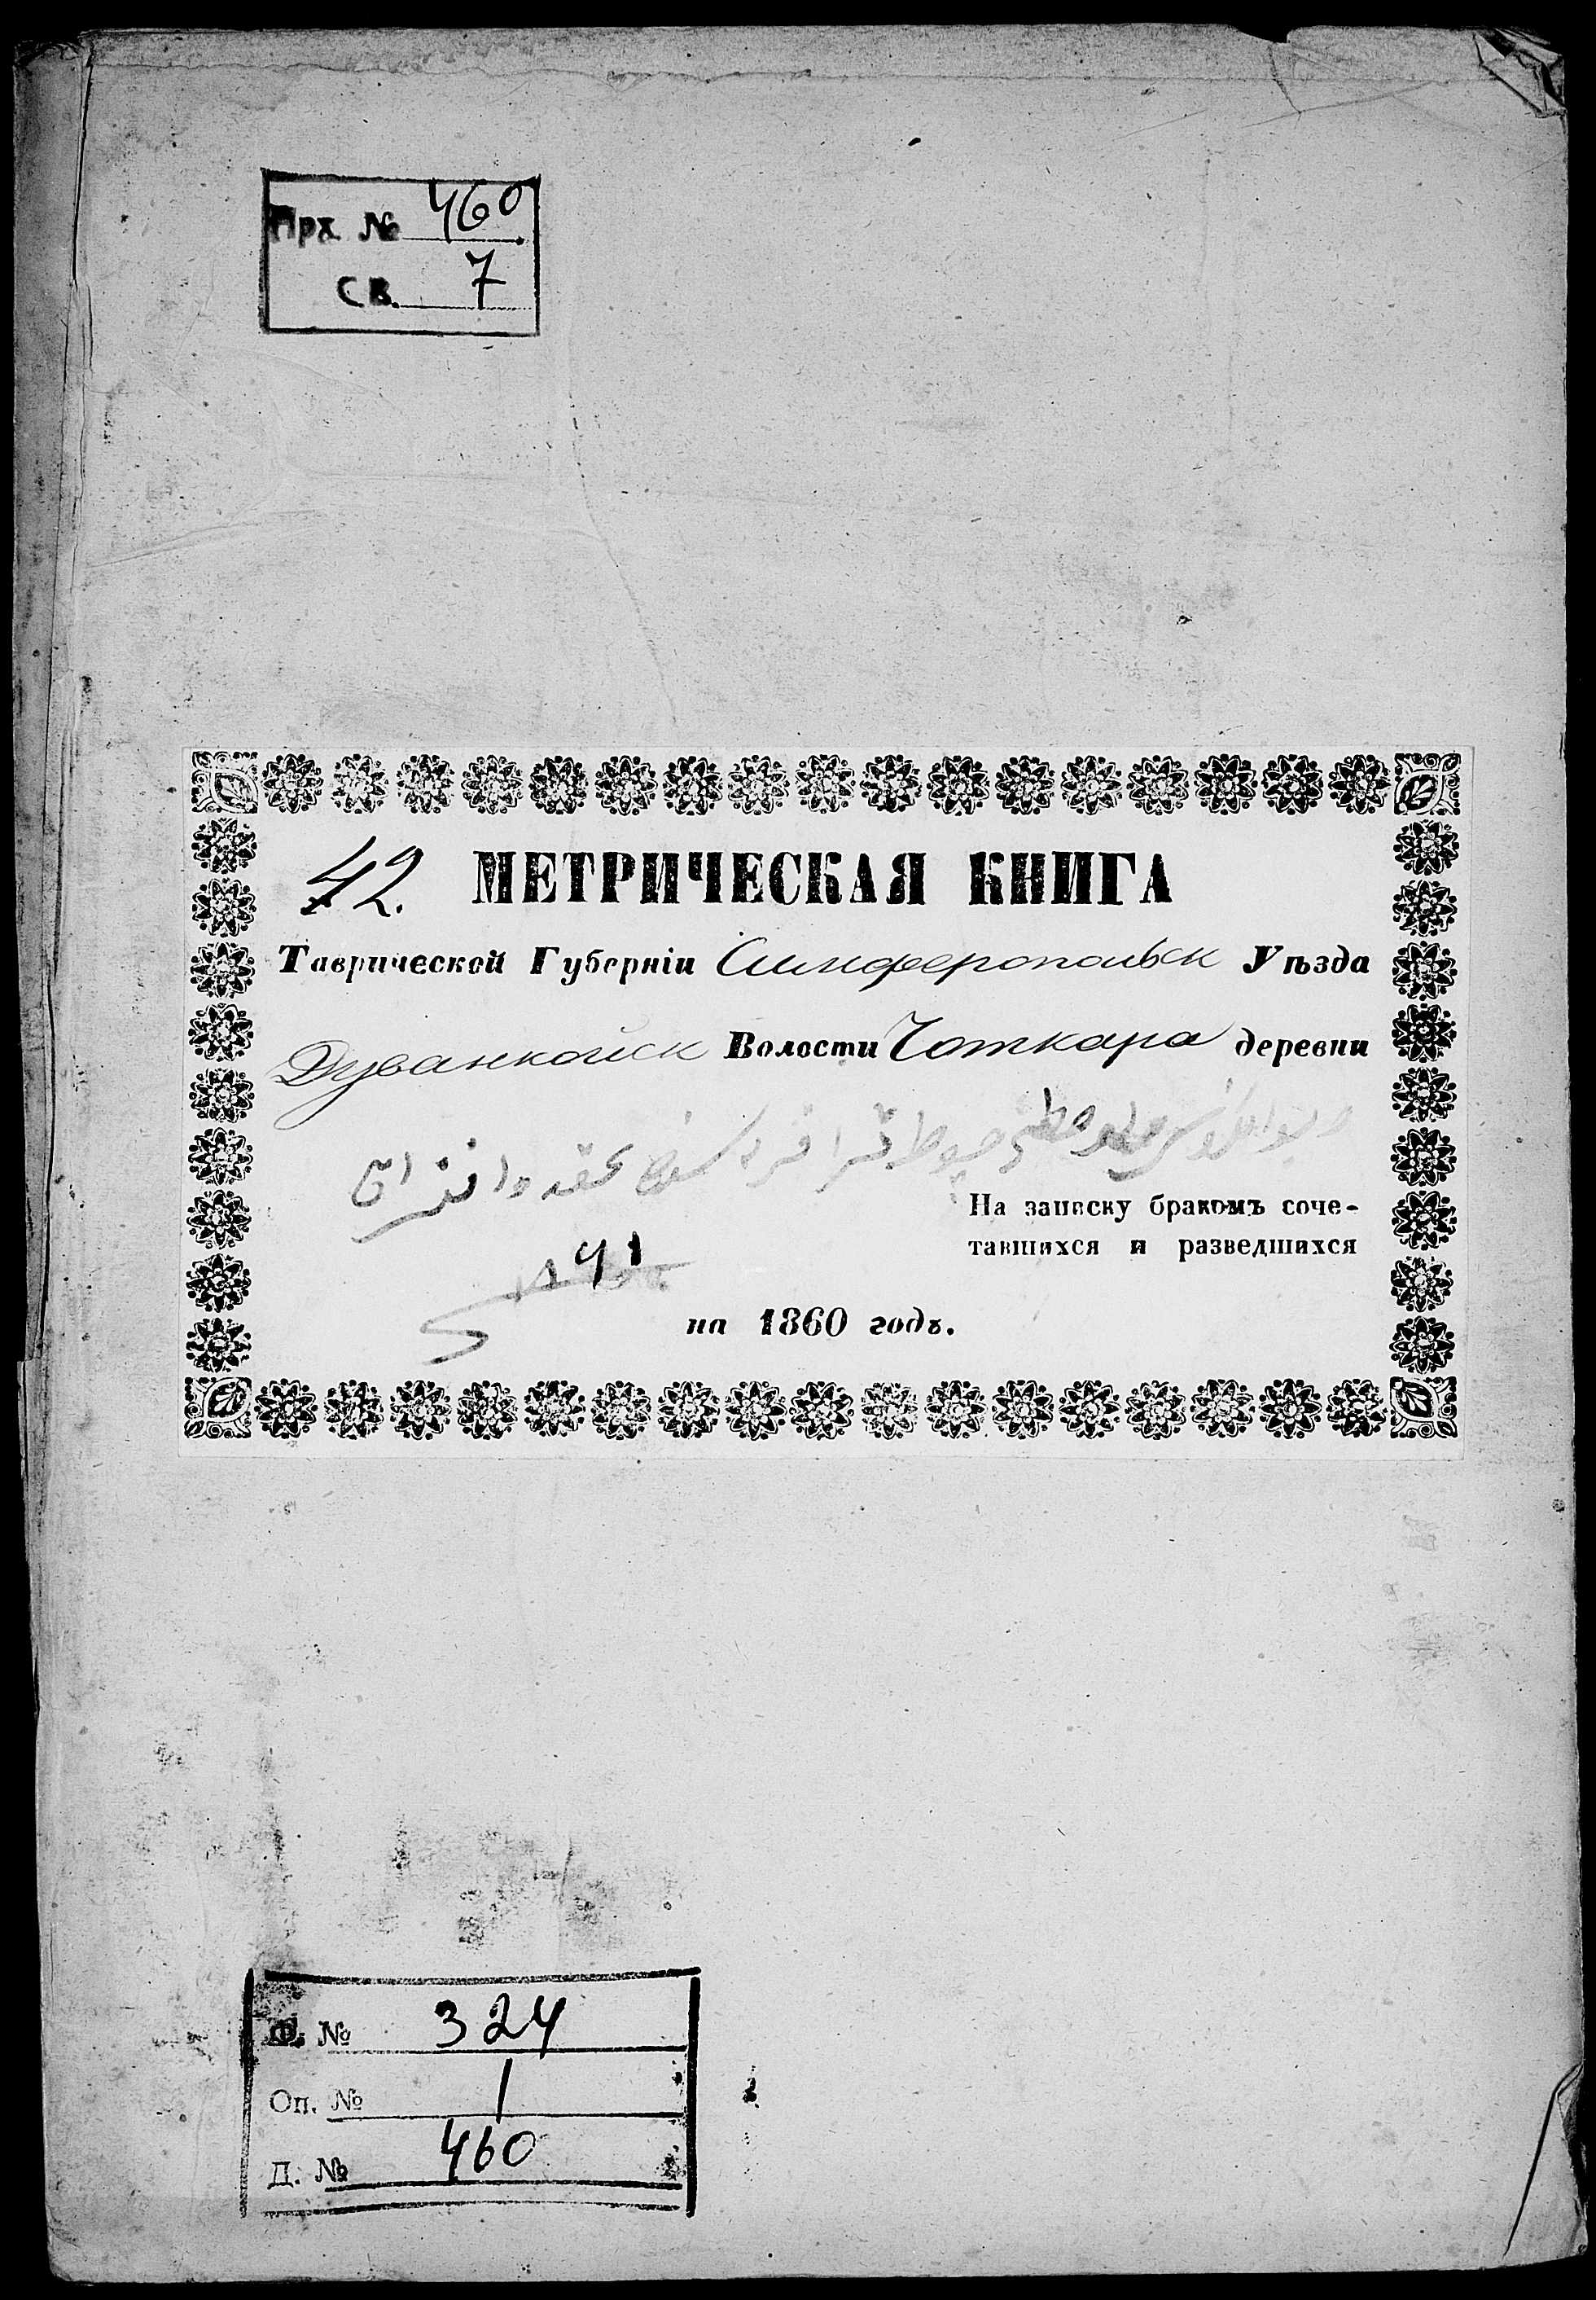 Прх № 460
св. 7
42. МЕТРИЧЕСКАЯ КНИГА
Таврической Губернiи Симферопольск Уѣзда
Дуванкойск Волости Чоткара деревни
На записку бракомъ соче-
тавшихся и разведшихся
на 1860 годъ.
Ф. № 324
Оп. № 1
Д. № 460